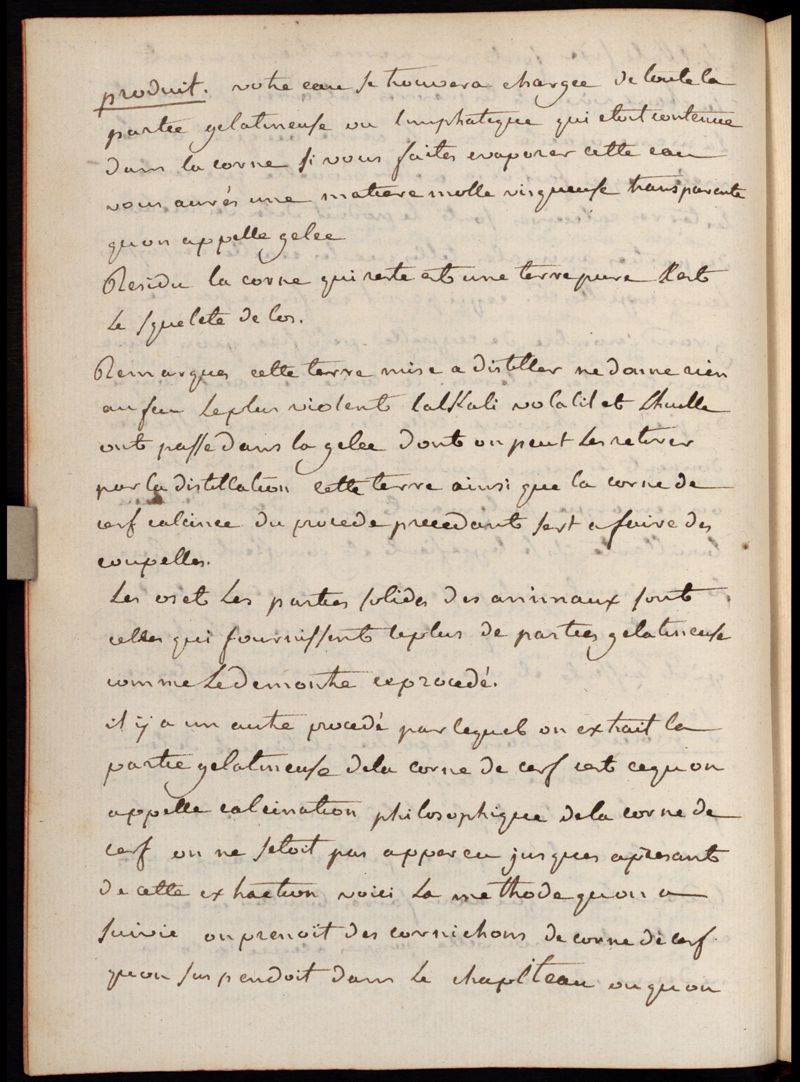 produit. votre eau se trouvera chargée de toute la
partie gelatineuse ou limphatique qui etoit contenue
dans la corne si vous faites evaporer cette eau
vous aurés une matiere molle visqueuse transparente
quon appelle gelée
Residu la corne qui reste est une terre pure Cest
Le squelete de los.
Remarques cette terre mise a distiller ne donne rien
au feu Le plus violent lalkali volatil et Lhuille
ont passe dans la gelee dont on peut Les retirer
par la distillation cette terre ainsi que la corne de
cerf calcinee du procede precedant sert a faire des
coupelles.
Les os et Les parties solides des animaux sont
celles qui fournissent le plus de parties gelatineuse
comme Le demontre ce procedé.
il y a un autre procedé par lequel on extrait la
partie gelatineuse de la corne de cerf cest ce quon
appelle calcination philosophique de la corne de
cerf on ne setoit pas appercu jusques apresant
de cette extraction voici La methode quon a
suivie on prenoit des cornichons de corne de cerf
quon suspendoit dans Le chapiteau ou quon